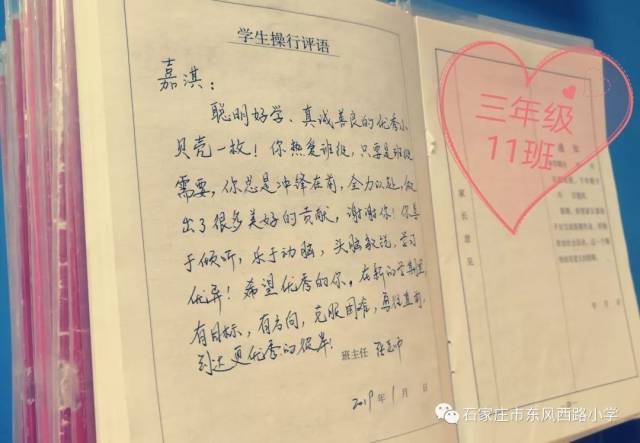 学生操行评语
嘉淇：
聪明好学、真诚善良的优秀小
贝壳一枚！你热爱班级，只要是班级
需要，你总是冲锋在前，全力以赴，做
出了很多美好的贡献，谢谢你！你善
于倾听，乐于动脑，头脑敏锐，学习
优异！希望优秀的你，在新的学期里
有目标，有方向，克服困难，勇往直前，
到达更优秀的彼岸！
班主任
2019年1月 日
家长意见
通知
年 月 日
三年级
11班
石家庄市东风西路小学